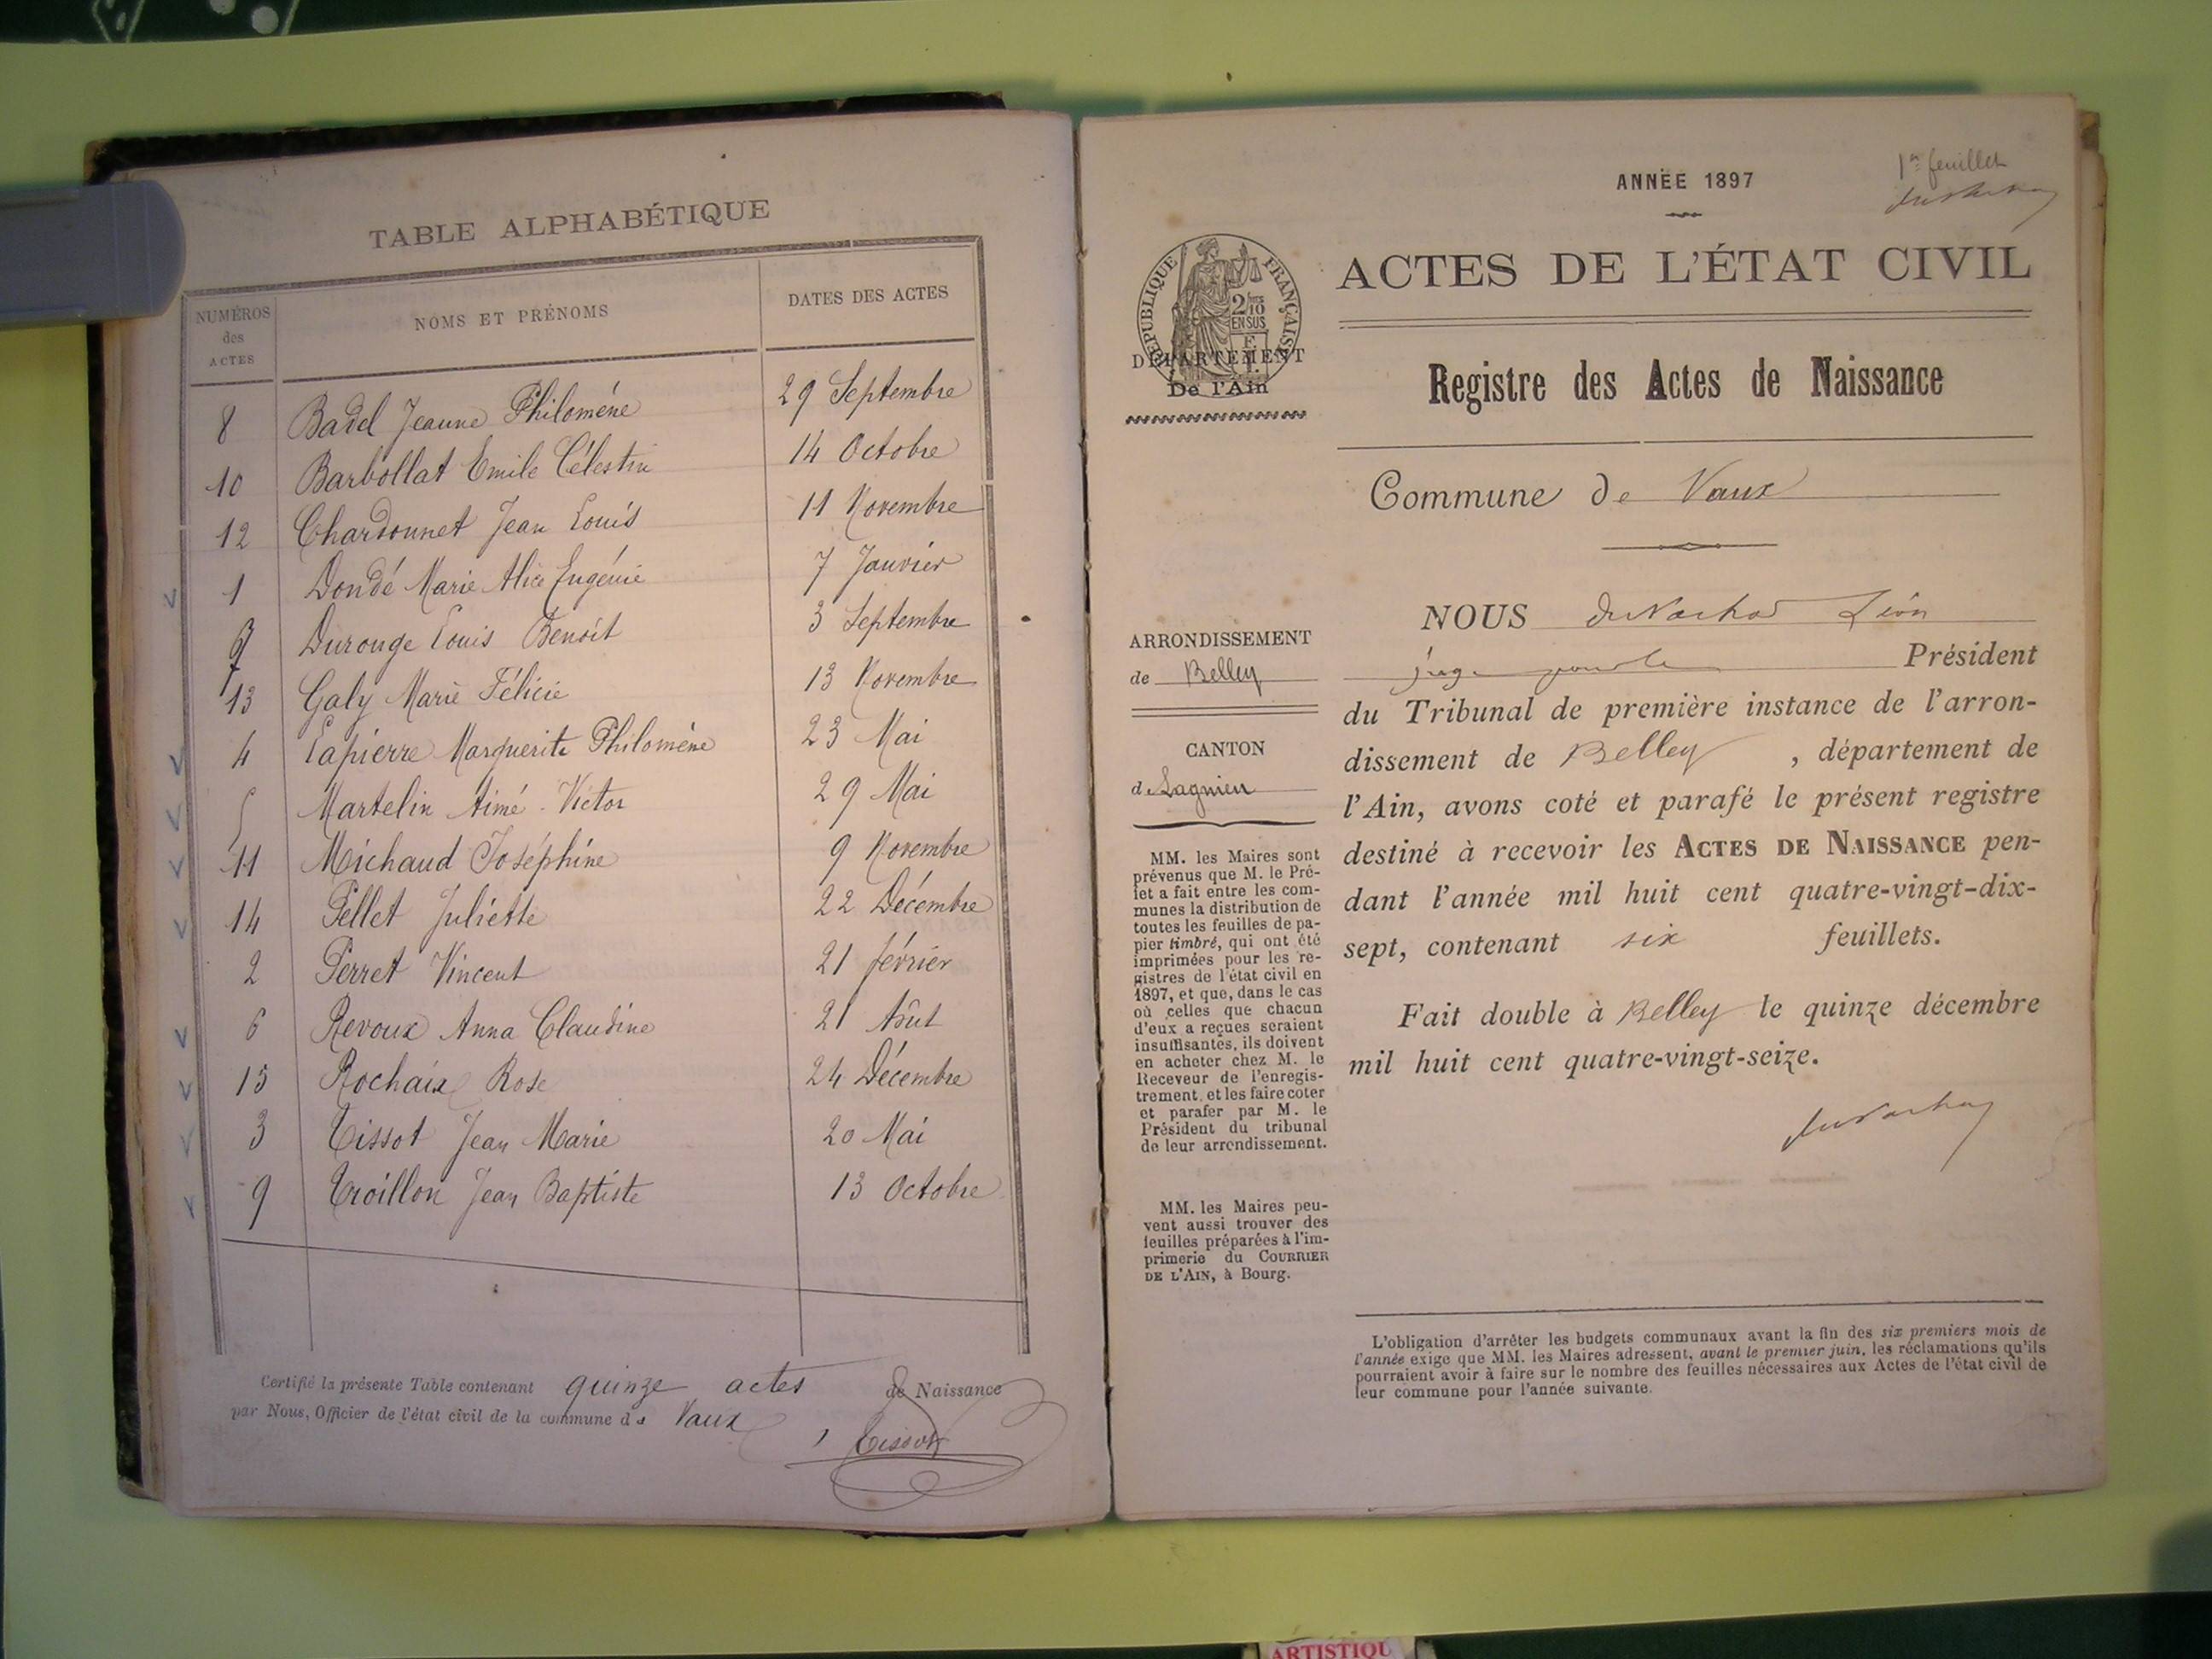 TABLE ALPHABÉTIQUE
NUMÉROS des ACTES NOMS ET PRÉNOMS DATES DES ACTES
8 Badel Jeanne Philoméne 29 Septembre
10 Barbollat Emile Célestin 14 Octobre
12 Chardonnet Jean Louis 11 Novembre
1 Dondé Marie Alice Eugénie 7 Janvier
7 Durouge Louis Benoit 3 Septembre
13 Galy Marie Félicie 13 Novembre
4 Lapierre Marguerite Philoméne 23 Mai
5 Martelin Aimé Victor 29 Mai
11 Michaud Joséphine 9 Novembre
14 Pellet Juliette 22 Décembre
2 Perret Vincent 21 février
6 Revoux Anna Claudine 21 Août
15 Rochaix Rose 24 Décembre
3 Tissot Jean Marie 20 Mai
9 Troillon Jean Baptiste 13 Octobre
Certifié la présente Table contenant quinze actes de Naissance
par Nous, Officier de l'état civil de la commune de Vaux
Tissot
1er feuillet
ANNÉE 1897
RÉPUBLIQUE FRANÇAISE
2/10
EN SUS
ACTES DE L'ÉTAT CIVIL
DÉPARTEMENT
De l'Ain
Registre des Actes de Naissance
Commune de Vaux
ARRONDISSEMENT
de Belley
CANTON
de Lagnieu
MM. les Maires sont
prévenus que M. le Pré-
fet a fait entre les com-
munes la distribution de
toutes les feuilles de pa-
pier timbré, qui ont été
imprimées pour les re-
gistres de l'état civil en
1897, et que, dans le cas
où celles que chacun
d'eux a reçues seraient
insuffisantes, ils doivent
en acheter chez M. le
Receveur de l'enregis-
trement, et les faire coter
et parafer par M. le
Président du tribunal
de leur arrondissement.
MM. les Maires peu-
vent aussi trouver des
feuilles préparées à l'im-
primerie du COURRIER
DE L'AIN, à Bourg.
NOUS Léon
juge pour le Président
du Tribunal de première instance de l'arron-
dissement de Belley, département de
l'Ain, avons coté et parafé le présent registre
destiné à recevoir les ACTES DE NAISSANCE pen-
dant l'année mil huit cent quatre-vingt-dix-
sept, contenant six feuillets.
Fait double à Belley le quinze décembre
mil huit cent quatre-vingt-seize.
L'obligation d'arrêter les budgets communaux avant la fin des six premiers mois de
l'année exige que MM. les Maires adressent, avant le premier juin, les réclamations qu'ils
pourraient avoir à faire sur le nombre des feuilles nécessaires aux Actes de l'état civil de
leur commune pour l'année suivante.
ARTISTIQU